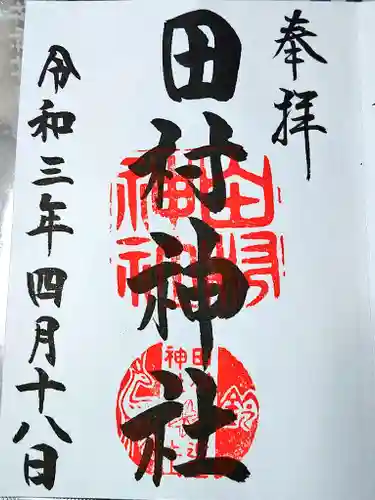 奉拝
田村神社
令和三年四月十八日